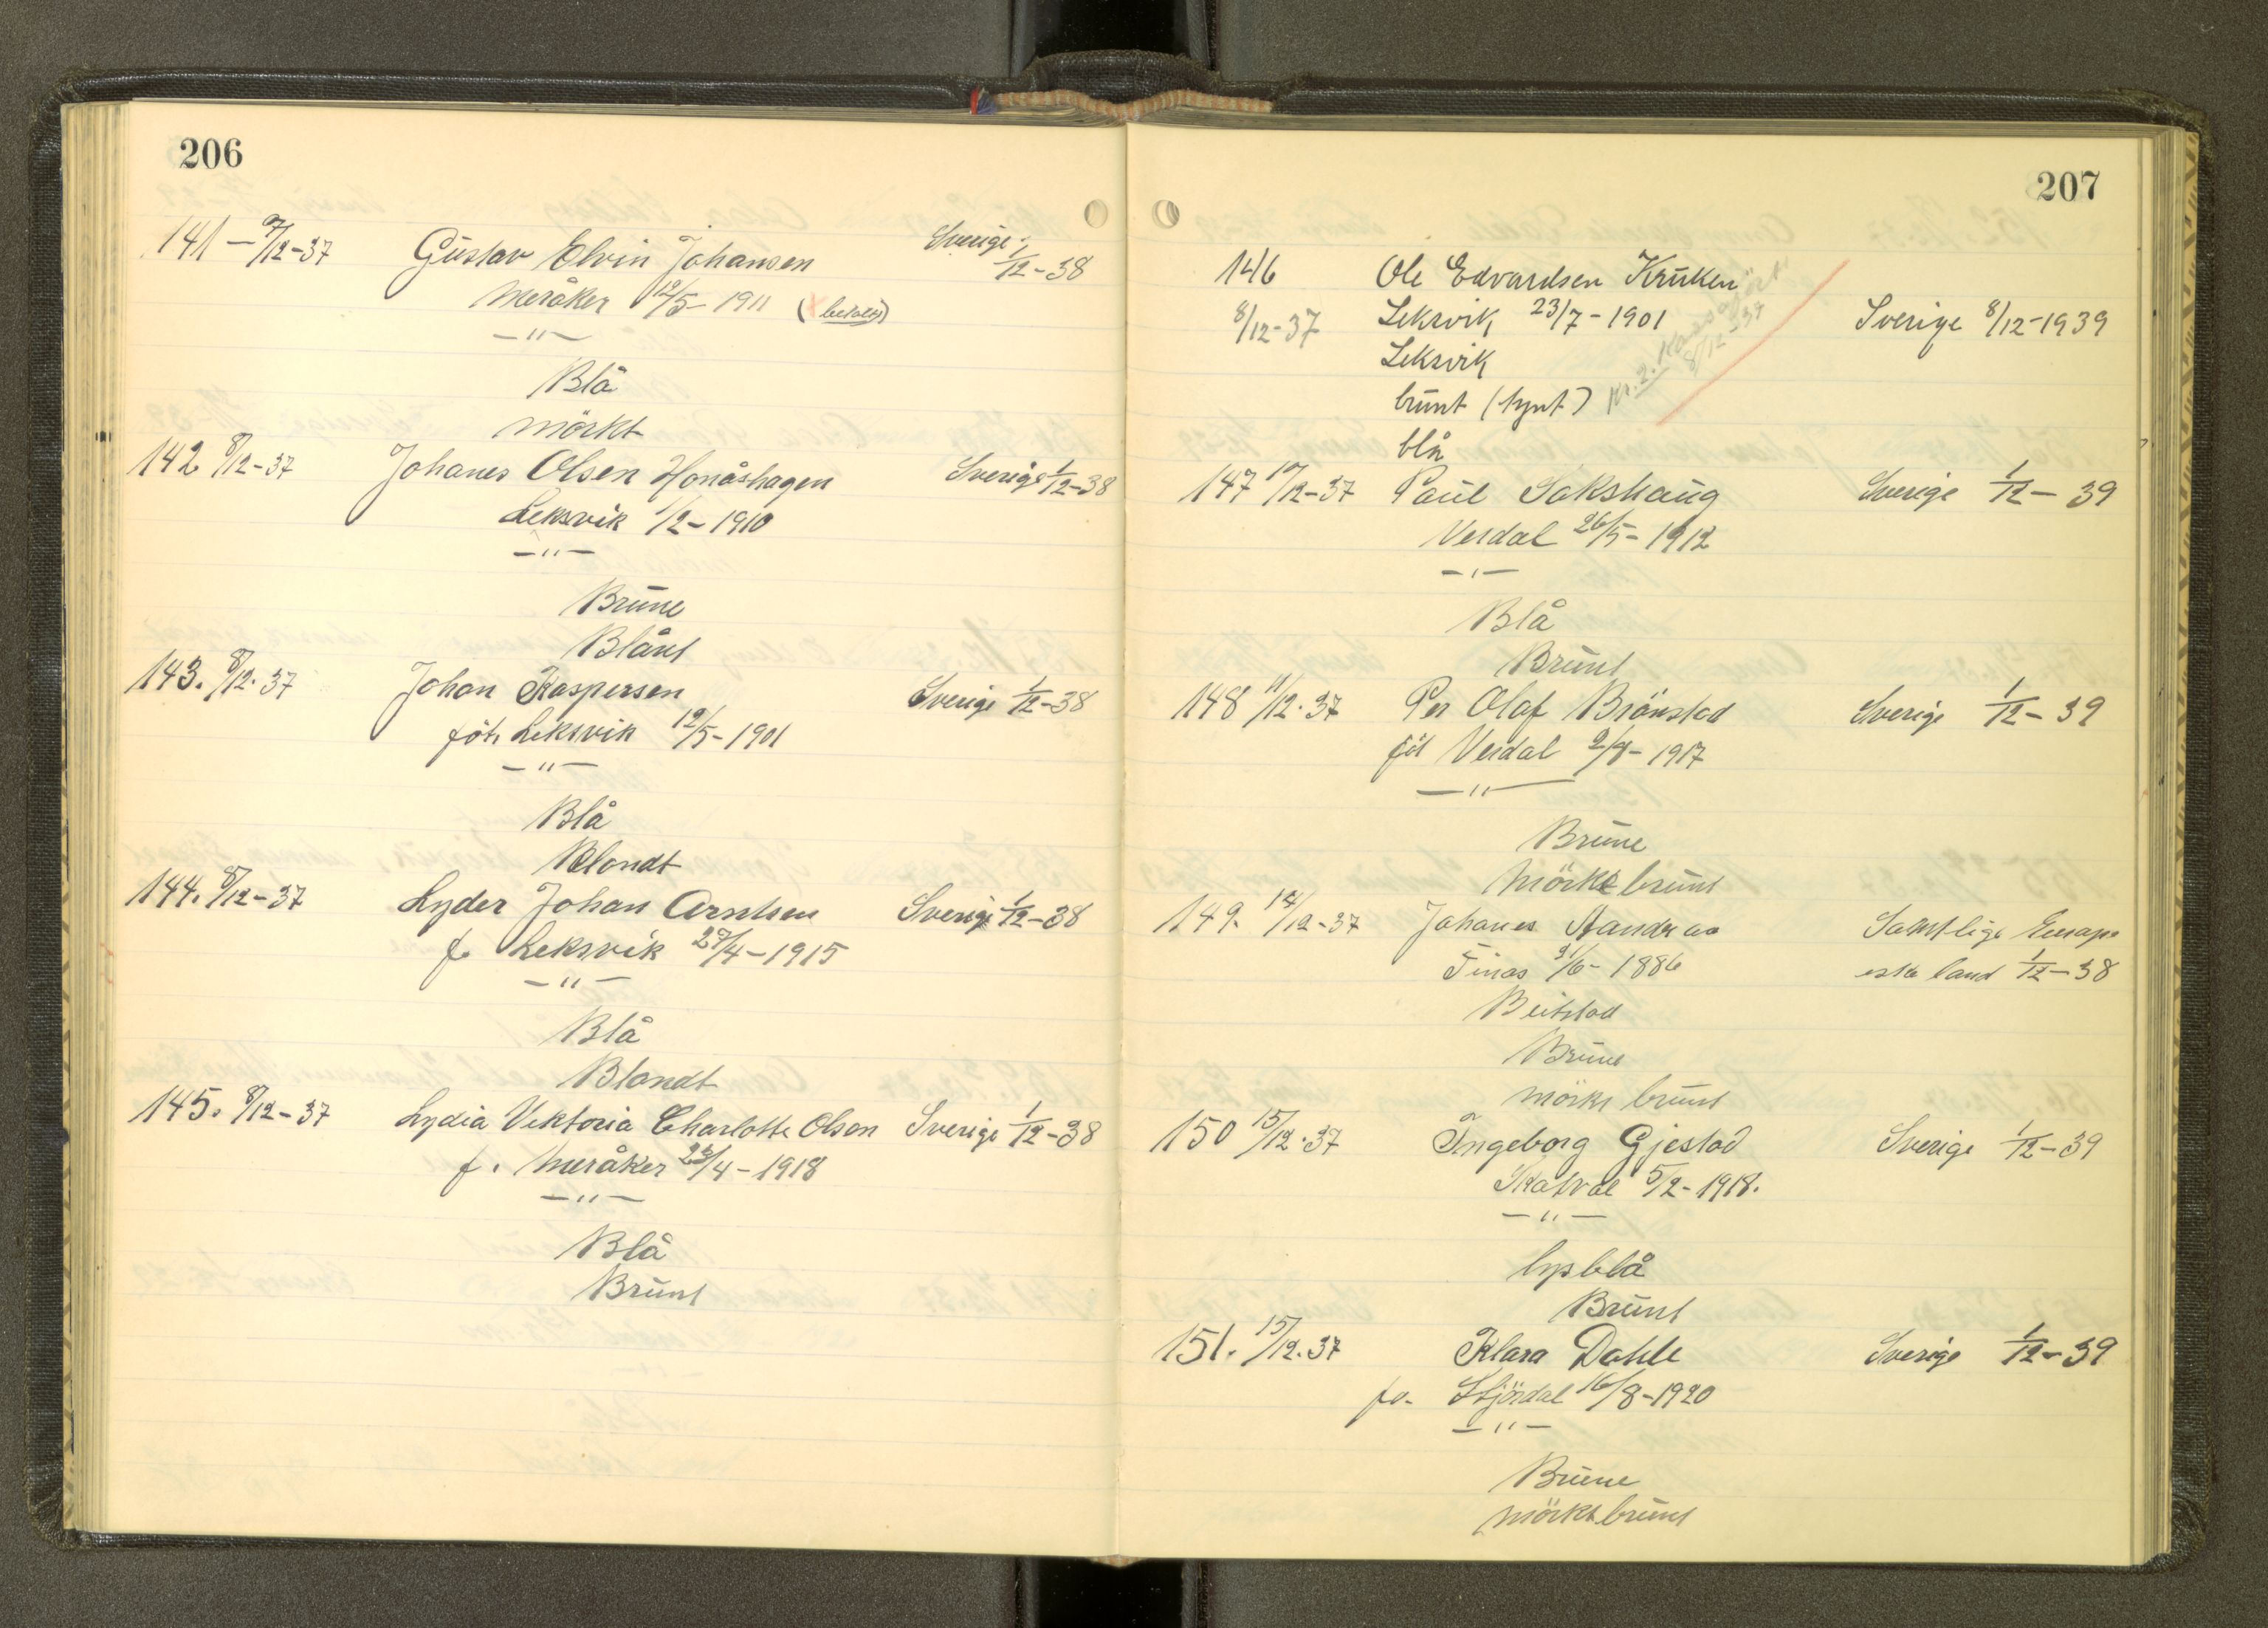 206
141 — 7/12-37 Gustav Elvin Johansen Sverige 1/12-38
Meråker 12/5-1911 (betalt)
— " —
Blå
mörkt
142 8/12-37 Johanes Olsen Honåshagen Sverige 1/12-38
Leksvik 1/2-1910
— " —
Brune
Blånt
143. 8/12-37 Johan Kaspersen Sverige 1/12-38
föt. Leksvik 12/5-1901
— " —
Blå
Blondt
144. 8/12-37 Lyder Johan Arntsen Sverige 1/12-38
f. Leksvik 27/4-1915
— " —
Blå
Blondt
145. 8/12-37 Lydia Viktoria Charlotte Olsen Sverige 1/12-38
f. Meråker 23/4-1918
— " —
Blå
Brunt
207
146 Ole Edvardsen Kruken
8/12-37 Leksvik 23/7-1901 Sverige 8/12-1939
Leksvik
brunt (tynt)
Kr. 2. 8/12-37
blå
147 10/12-37 Paul Sakshaug Sverige 1/12-39
Verdal 26/5-1912
— " —
Blå
Brunt
148 11/12-37 Per Olaf Brönstad Sverige 1/12-39
föt Verdal 2/8-1917
— " —
Brune
Mörkt brunt
149. 14/12-37 Johanes Aandraa Samtlige Europe
21/6-1886 eiske land 1/12-38
Beitstad
Brune
mörkt brunt
150 15/12-37 Ingeborg Gjestad Sverige 1/12-39
Skatval 5/2-1918.
— " —
lysblå
Brunt
151. 15/12-37 Klara Dahle Sverige 1/12-39
fo. Stjördal 16/8-1920
— " —
Brune
mörkt brunt